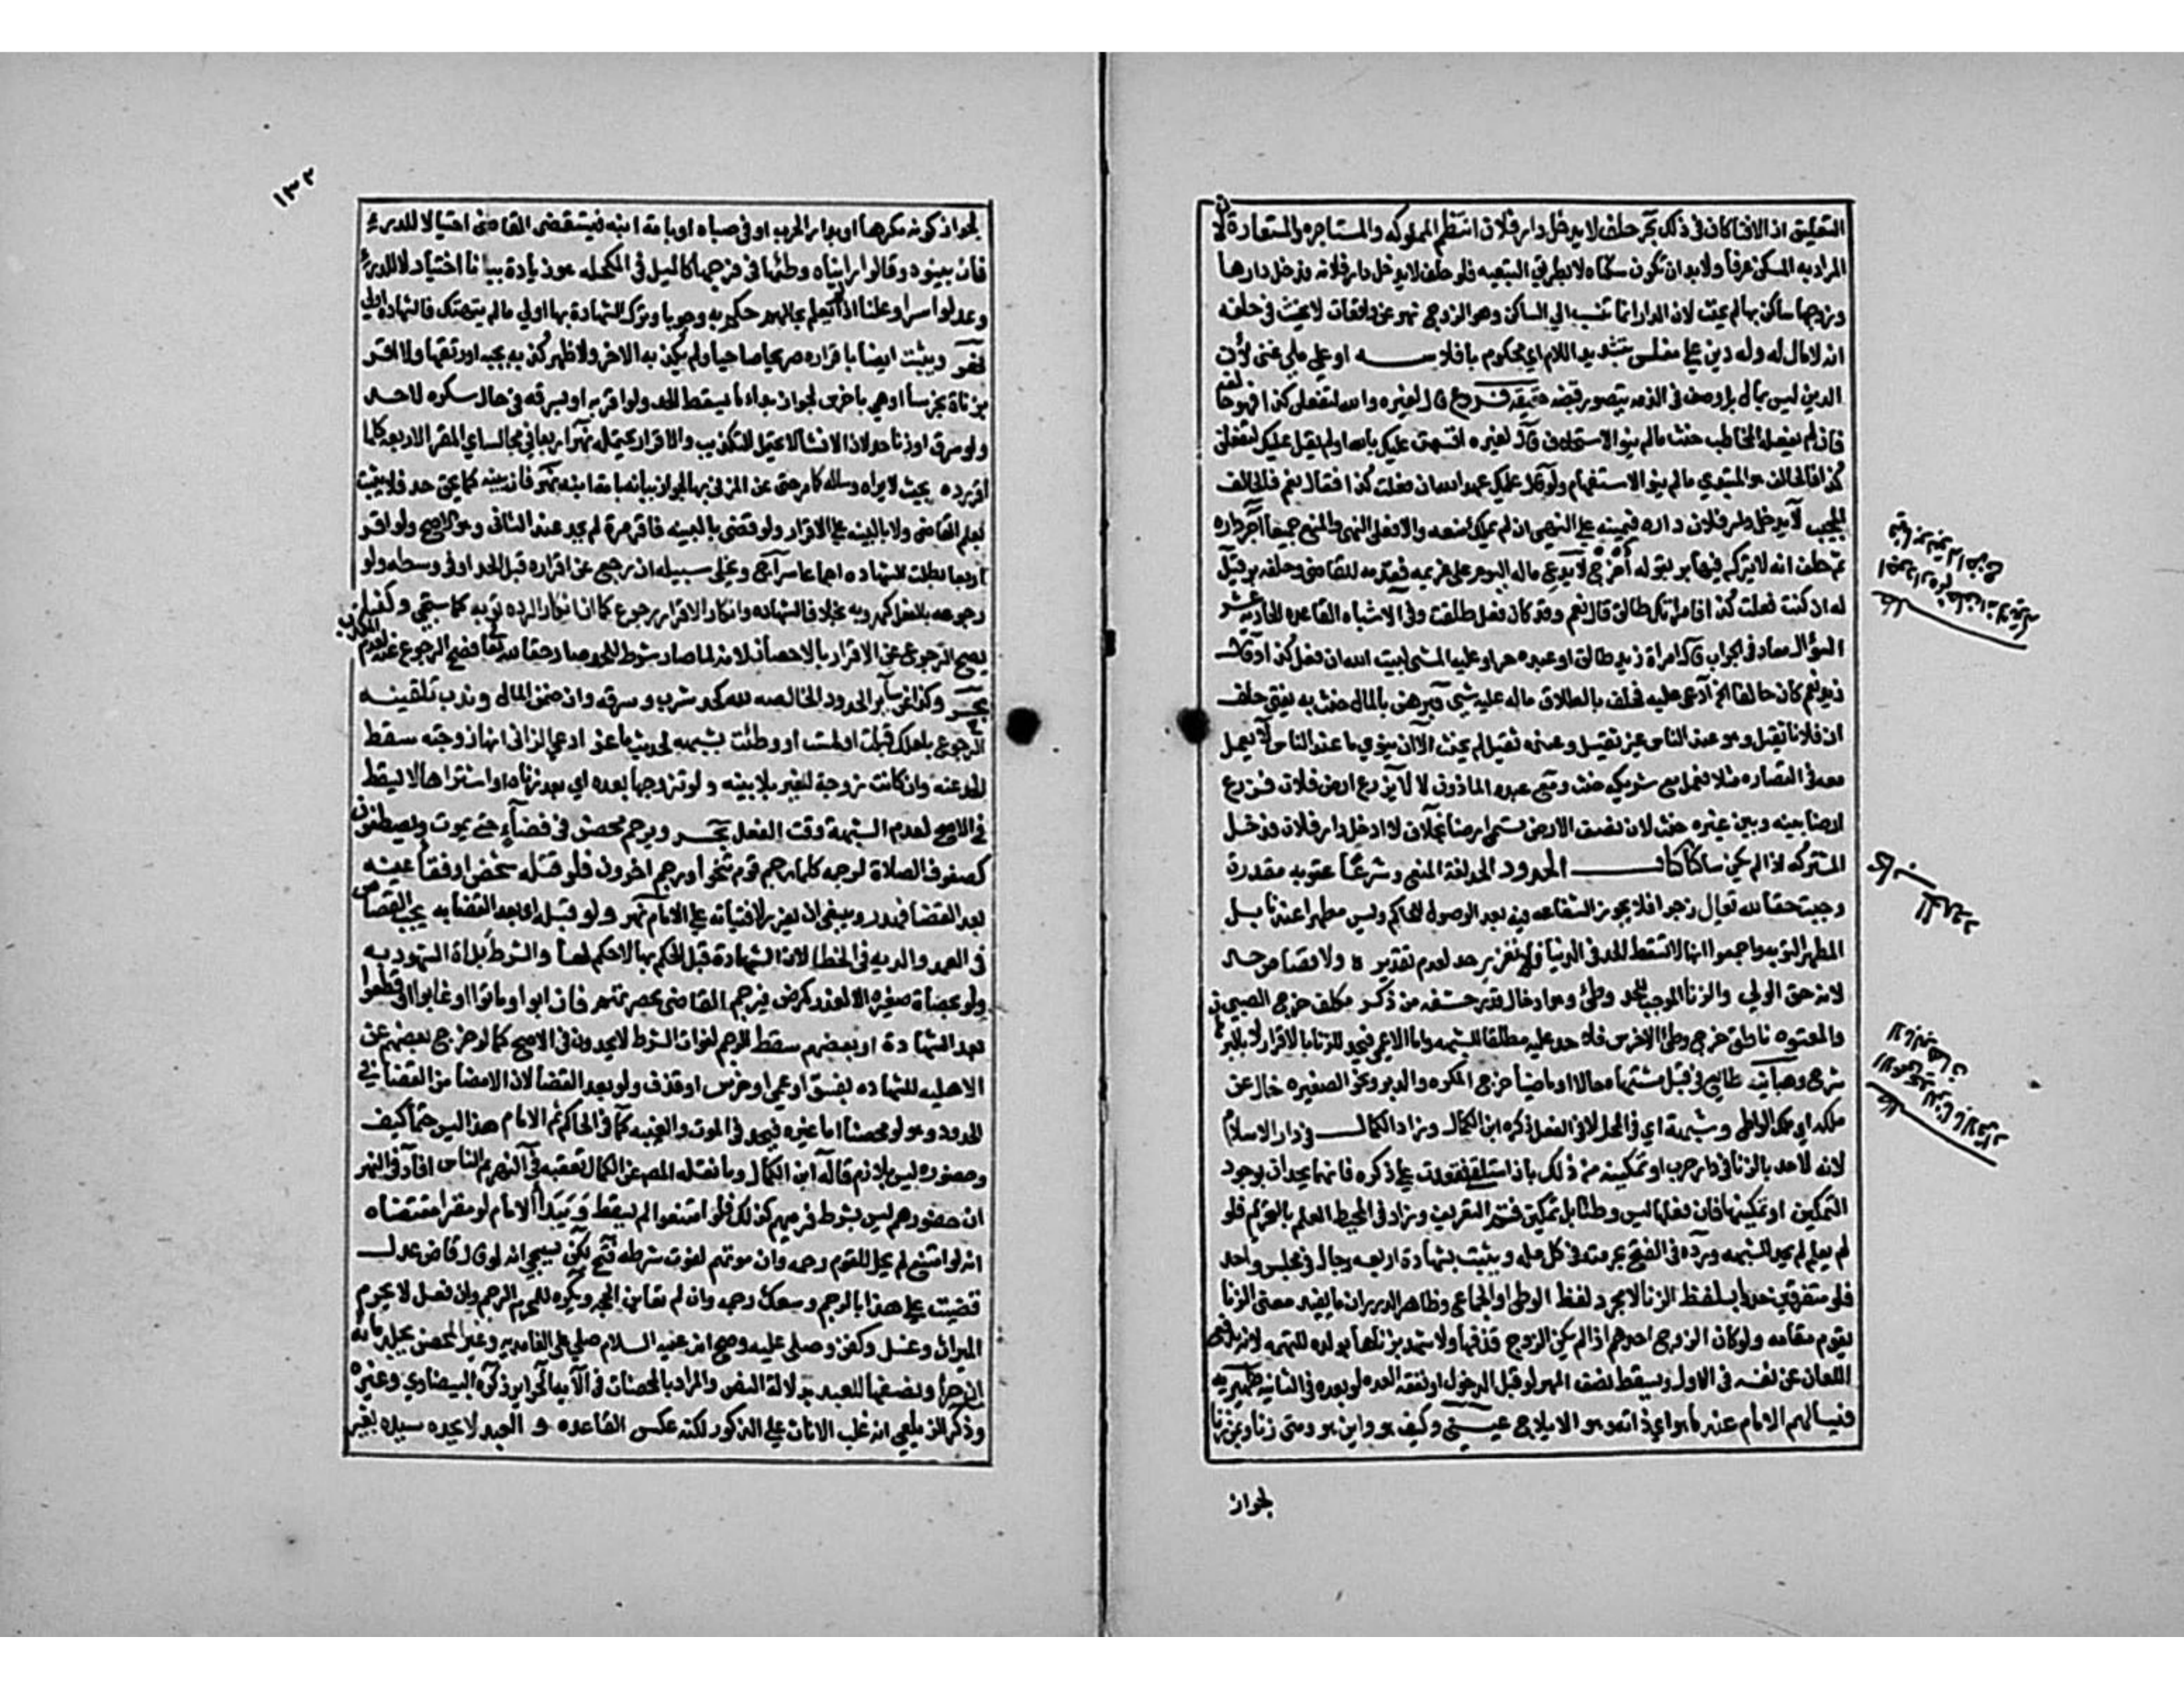 التعليق اذ الافتا كان في ذلك بحر حلف لا يدخل دار فلان انتظم المملوكه والمستاجره والمستعاره لان
المراد به المسكن عرفا ولا بد ان تكون سكناه لا بطريق التبعيه فلو حلف لا يدخل دار فلانه فدخل دارها
وزوجها ساكن بها لم يحنث لان الدار انما تنسب الي الساكن وهو الزوج نهر عن واقعات لا يحنث في حلفه
انه لا مال له وله دين علي مفلس بتشديد اللام اي محكوم بافلاسه او علي ملي غني لان
الدين ليس بمال بل وصف في الذمه يتصور قبضه حقيقه فروع قال لغيره والله لتفعلن كذا فهو حالف
فان لم يفعله المخاطب حنث ما لم ينو الاستحلاف قال لغيره اقسمت عليك بالله او لم يقل عليك لتفعلن
كذا فالحالف هو المبتدي ما لم ينو الاستفهام ولو قال عليك عهد الله ان فعلت كذا فقال نعم فالحالف
المجيب لا يدخل دار فلان داره فيمينه علي النهي ان لم يملك منعه والا فعلي النهي والمنع جميعا آجر داره
ثم حلف انه لا يتركه فيها بر بقوله اخرج لا يدع ماله اليوم علي غريمه فقدمه للقاضي وحلفه بر قيل
له ان كنت فعلت كذا فامراتك طالق قال نعم وقد كان فعل طلقت وفي الاشباه القاعده الحادية عشر
السؤال معاد في الجواب قال امراة زيد طالق او عبده حر او عليه المشي لبيت الله ان فعل كذا وقال
زيد نعم كان حالفا الخ ادعي عليه فحلف بالطلاق ماله عليه شي فبرهن بالمال حنث به يفتي حلف
ان فلانا ثقيل وهو عند الناس غير ثقيل وعنده ثقيل لم يحنث الا ان ينوي ما عند الناس لا يعمل
معه في القصاره مثلا فعمل مع شريكه حنث ومع عبده الماذون لا لا يزرع ارض فلان فزرع
ارضا بينه وبين غيره حنث لان نصف الارض تسمي ارضا بخلاف لا ادخل دار فلان فدخل
المشتركه اذا لم يكن ساكنا كتاب الحدود الحد لغة المنع وشرعا عقوبه مقدرة
وجبت حقا لله تعالي زجرا فلا يجوز الشفاعه فيه بعد الوصول للحاكم وليس مطهرا عندنا بل
المطهر التوبه واجمعوا انها لا تسقط الحد في الدنيا ولا تعزير حد لعدم تقديره ولا قصاص حد
لانه حق الولي والزنا الموجب للحد وطئ وهو ادخال قدر حشفه من ذكر مكلف خرج الصبي
والمعتوه ناطق خرج وطئ الاخرس فلا حد عليه مطلقا للشبهه واما الاعمي فيحد للزنا بالاقرار لا بالبرهان
شرح وهبانيه طايع في قبل مشتهاه حالا او ماضيا خرج المكره والدبر ونحو الصغيره خال عن
ملكه اي ملك الواطي وشبهة اي في المحل لا في الفعل ذكره ابن الكمال وزاد الكمال في دار الاسلام
لانه لا حد بالزنا في دار حرب او تمكينه من ذلك بان استلقي فقعدت علي ذكره فانهما يحدان لوجود
التمكين او تمكينها فان فعلها ليس وطئا بل تمكين فتم التعريف وزاد في المحيط العلم بالتحريم فلو
لم يعلم لم يحد للشبهه ورده في الفتح بحرمته في كل مله ويثبت بشهادة اربعه رجال في مجلس واحد
فلو متفرقين حدوا بلفظ الزنا لا مجرد لفظ الوطي والجماع وظاهر الدرر ان ما يفيد معني الزنا
يقوم مقامه ولو كان الزوج احدهم اذا لم يكن الزوج قذفها ولا شهد بزناها بولده للتهمه لانه يدفع
اللعان عن نفسه في الاولي ويسقط نصف المهر لو قبل الدخول او نفقة العده لو بعده في الثانيه ظهيريه
فيسالهم الامام عنه ما هو اي ذاته وهو الايلاج عيني وكيف هو واين هو ومتي زنا وبمن زنا
لجواز
الحدود
١٣٢
لجواز كونه مكرها او بدار الحرب او في صباه او بامة ابنه فيستقصي القاضي احتيالا للدرء
فان بينوه وقالوا رايناه وطئها في فرجها كالميل في المكحله هو زيادة بيانا احتيالا للدرء
وعدلوا سرا وعلنا اذا لم يعلم بحالهم حكم به وجوبا وترك الشهادة بها اولي ما لم يتهتك فالشهاده اولي
نهر ويثبت ايضا باقراره صريحا صاحيا ولم يكذبه الاخر ولا ظهر كذبه بجبه او رتقها ولا اقر
بزناه بخرسا او هي باخرس لجواز ابداء ما يسقط الحد ولو اقر به او بسرقه في حال سكره لا حد
ولو سرق او زنا حد لان الانشا لا يحتمل التكذيب والاقرار يحتمله نهر اربعا في مجالسه اي المقر الاربعه كلما
اقر رده بحيث لا يراه وساله كما مر حتي عن المزني بها لجواز بيانه بامة ابنه نهر فان بينه كما يحق حد فلا يثبت
بعلم القاضي ولا بالبينه علي الاقرار ولو قضي بالبينه فاقر مرة لم يحد عند الثاني وهو الاصح ولو اقر
اربعا بطلت الشهاده اجماعا سراج ويخلي سبيله ان رجع عن اقراره قبل الحد او في وسطه ولو
رجوعه بالفعل كهروبه بخلاف الشهاده وانكار الاقرار رجوع كما ان انكار الرده توبه كما سيجي وكذا
يصح الرجوع عن الاقرار بالاحصان لانه لما صار شرطا للحد صار حقا لله تعا فصح الرجوع عنه لعدم المكذب
بحر وكذا عن سائر الحدود الخالصه لله كحد شرب وسرقه وان ضمن المال وندب تلقينه
الرجوع بلعلك قبلت او لمست او وطئت بشبهه لحديث ماعز ادعي الزاني انها زوجته سقط
الحد عنه وان كانت زوجة للغير بلا بينه ولو تزوجها بعده اي بعد زناه او اشتراها لا يسقط
في الاصح لعدم الشبهة وقت الفعل بحر ويرجم محصن في فضاء حتي يموت ويصطفون
كصفوف الصلاة لرجمه كلما رجم قوم تنحوا ورجم اخرون فلو قتله شخص او فقأ عينه
بعد القضا فهدر وينبغي ان يعزر لافتياته علي الامام نهر ولو قبله اي قبل القضا به يجب القصاص
في العمد والديه في الخطا لان الشهادة قبل الحكم بها لا حكم لها والشرط بداة الشهود به
ولو بحصاة صغيره الا لعذر كمرض فيرجم القاضي بحضرتهم فان ابوا او ماتوا او غابوا او قطعوا
بعد الشهادة او بعضهم سقط الرجم لفوات الشرط لا يحدون في الاصح كما لو خرج بعضهم عن
الاهليه للشهاده بفسق او عمي او خرس او قذف ولو بعد القضا لان الامضا من القضا في
الحدود وهو لو محصنا اما غيره فيحد في الموت والغيبه كما في الحاكم ثم الامام هذا ليس حتما كيف
وحضوره ليس بلازم قاله ابن الكمال وما نقله المص عن الكمال تعقبه في النهر ثم الناس افاد في النهر
ان حضورهم ليس بشرط فرميهم كذلك فلو امتنعوا لم يسقط ويبدأ الامام لو مقرا مقتضاه
انه لو امتنع لم يحل للقوم رجمه وان امرهم لفوت شرطه فتح لكن سيجي انه لو قال قاض عدل
قضيت علي هذا بالرجم وسعك رجمه وان لم تعاين الحجه ويكره للمحرم الرجم وان فعل لا يحرم
الميراث وغسل وكفن وصلي عليه وصح انه عليه السلام صلي علي الغامديه وغير المحصن يجلد مائه
ان حرا ونصفها للعبد بدلالة النص والمراد بالمحصنات في الآيه الحراير ذكره البيضاوي وغيره
وذكر الزيلعي انه غلب الاناث علي الذكور لكنه عكس القاعده و العبد لا يحده سيده بغير